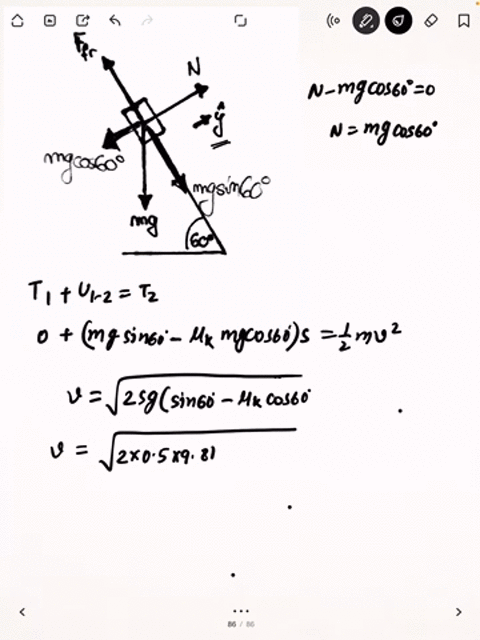 F_fr
N
ŷ
N - mg cos60° = 0
N = mg cos60°
mg cos60°
mg sin60°
mg
60°
T₁ + U₁₋₂ = T₂
0 + (mg sin60° - μₖ mg cos60°)s = ½mv²
v = √2sg(sin60° - μₖ cos60°
v = √2×0.5×9.81
86 / 86